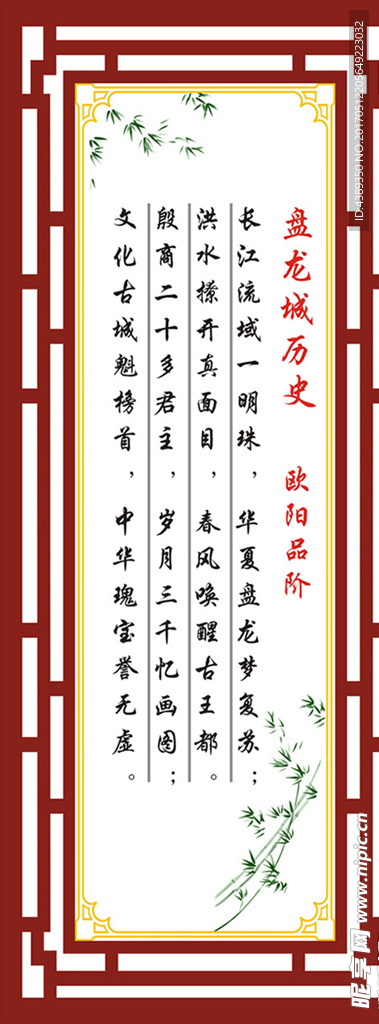 盘龙城历史 欧阳品阶
长江流域一明珠，华夏盘龙梦复苏；
洪水撩开真面目，春风唤醒古王都。
殷商二十多君主，岁月三千忆画图；
文化古城魁榜首，中华瑰宝誉无虚。
ID:4389350 NO:20170512205649223032
昵享网 www.nipic.cn